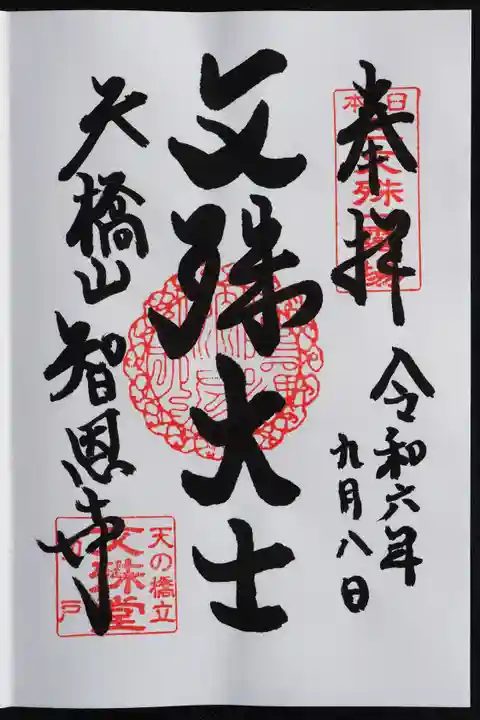 奉拝
日本三文殊霊場
令和六年
九月八日
文殊大士
天橋山
智恩寺
天の橋立
文殊堂
切戸